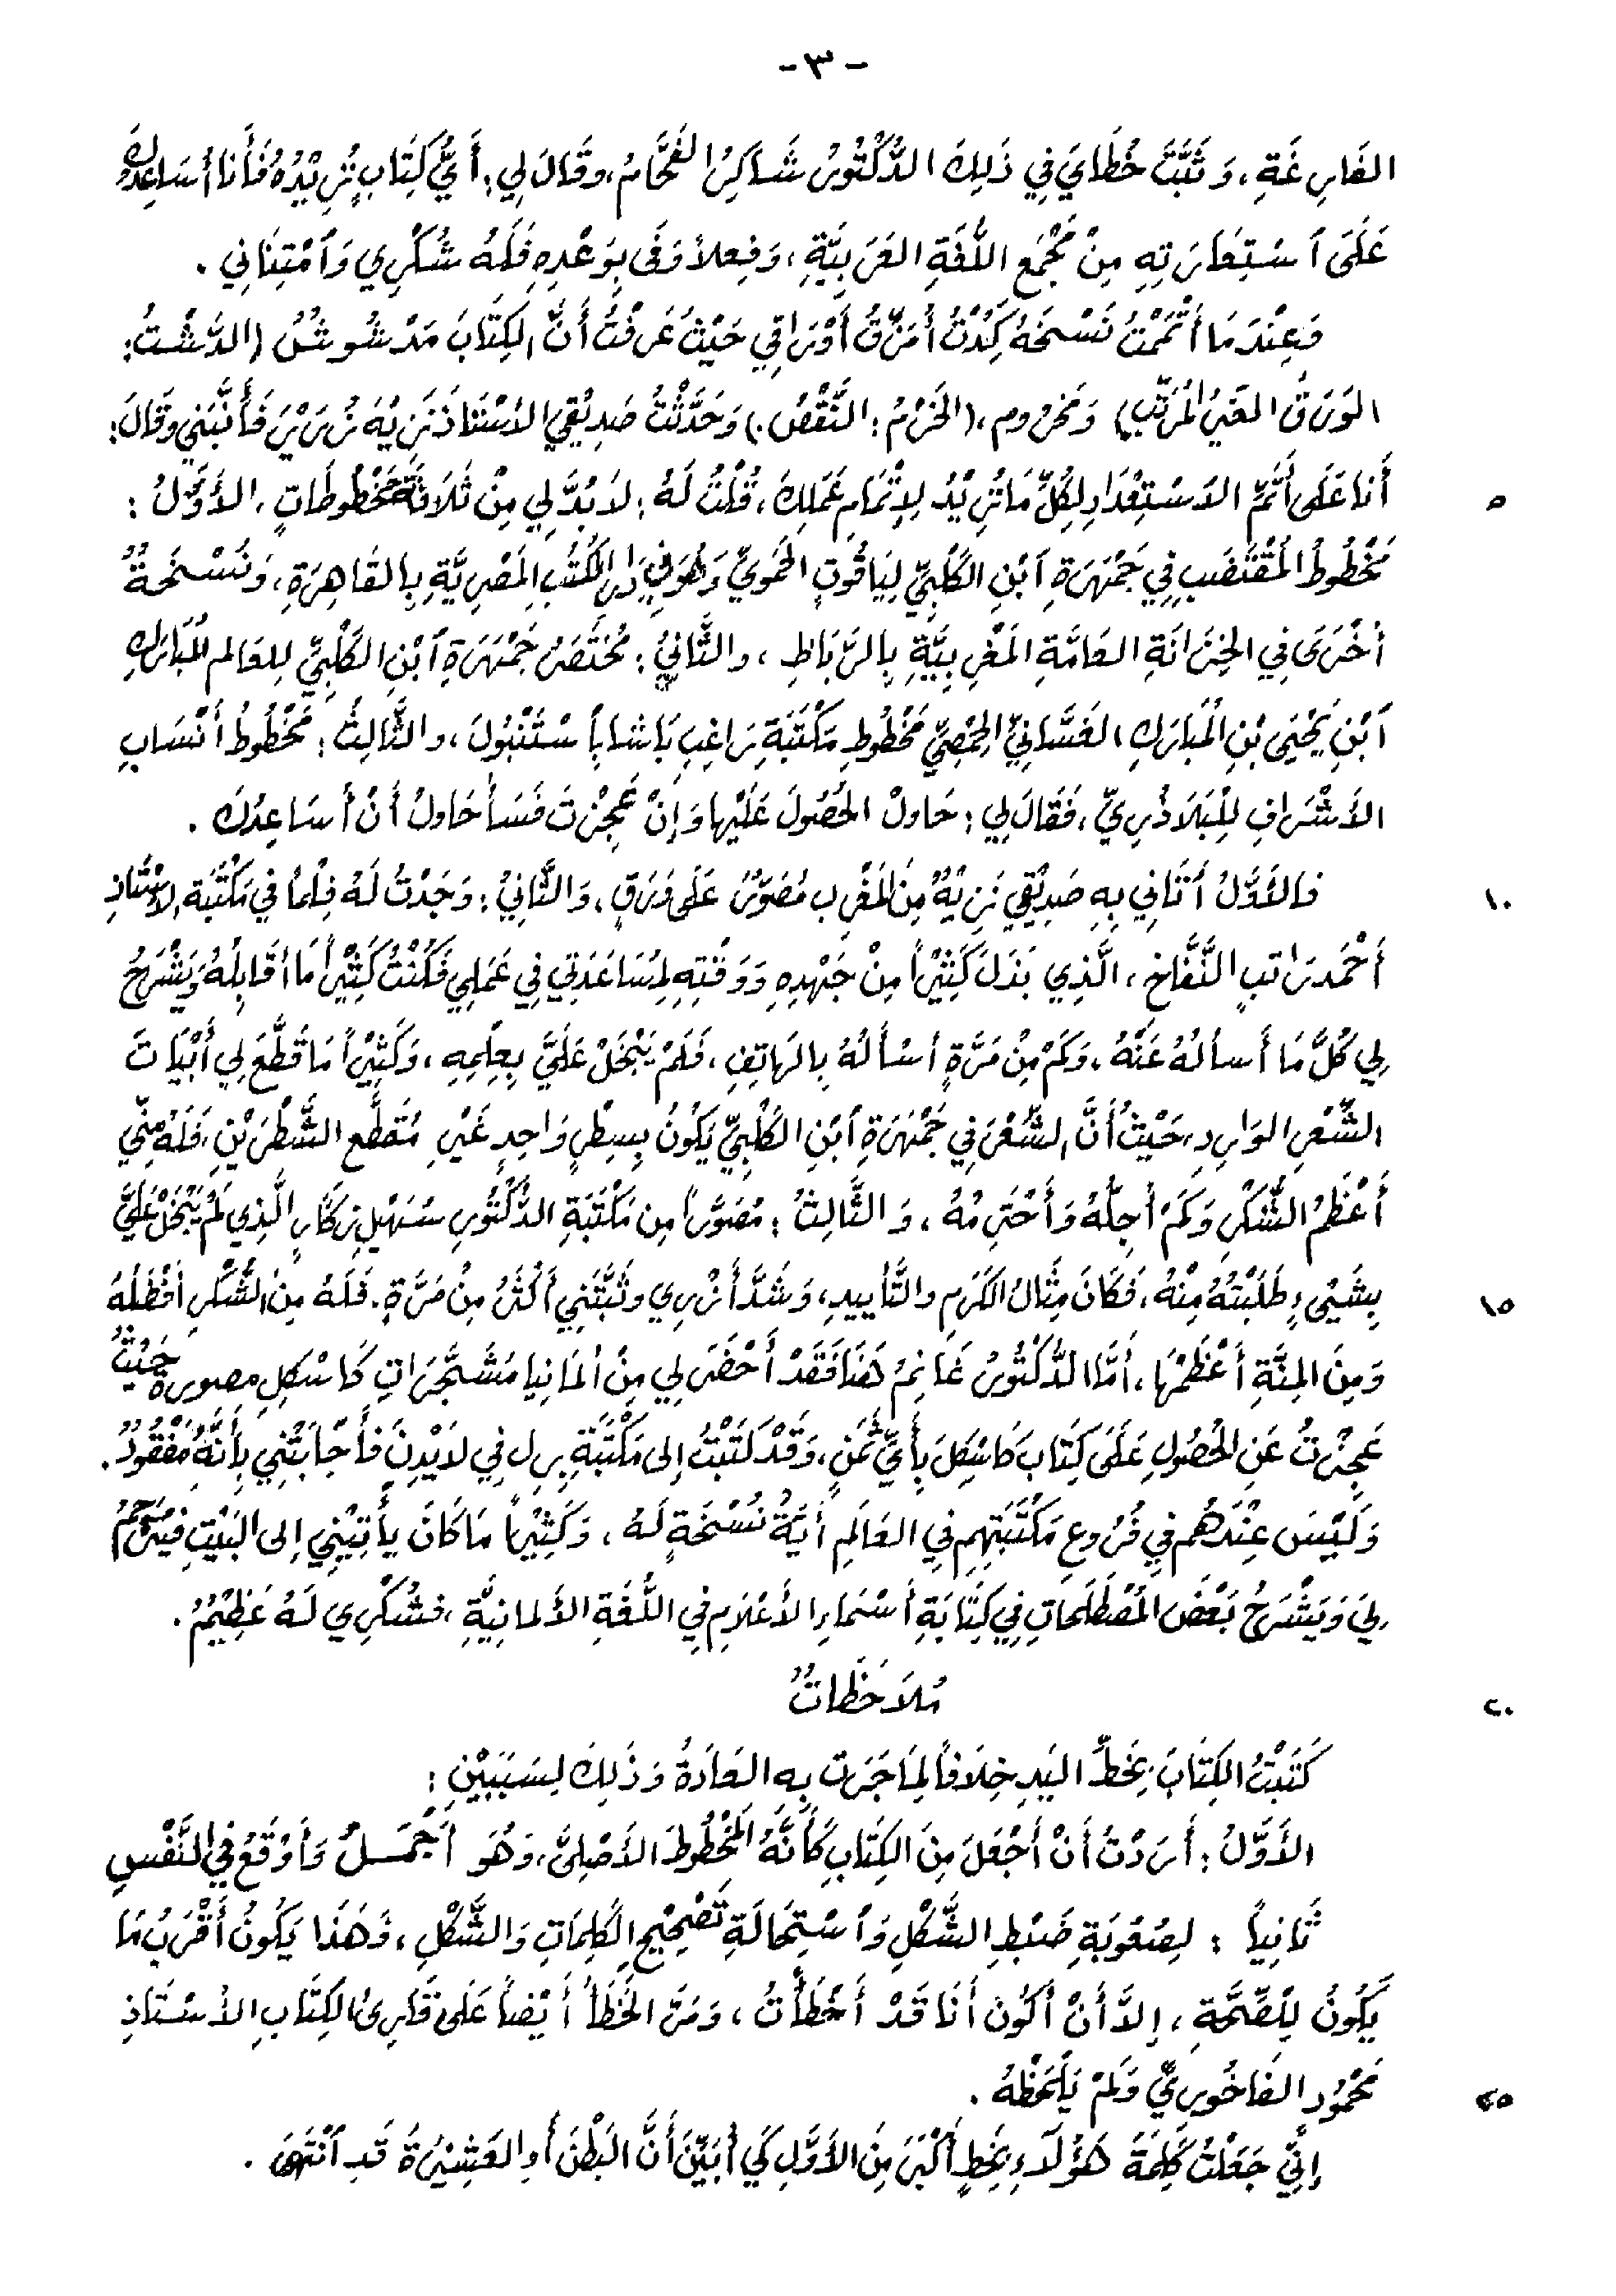 -٣-
الفَارِغَةِ، وَثَبَّتَ خُطَايَ فِي ذَلِكَ الدُّكْتُورُ شَاكِرُ الفَحَّامُ، وقَالَ لِي: أَيُّ كِتَابٍ تُرِيْدُهُ فَأَنا أُسَاعِدُكَ
عَلَى ٱسْتِعَارَتِهِ مِنْ مَجْمَعِ اللُّغَةِ العَرَبِيَّةِ، وَفِعلاً وَفَى بِوَعْدِهِ فَلَهُ شُكْرِي وَٱمْتِنَانِي.
وَعِنْدَمَا أَتْمَمْتُ نَسْخَهُ كِدْتُ أُمَزِّقُ أَوْرَاقِي حَيْثُ عَرَفْتُ أَنَّ الكِتَابَ مَدْشُوشٌ (الدَّشْتُ:
الوَرَقُ الغَيْرُ المُرَتَّبِ) وَمَخْرُوم، (الخَرْمُ: النَّقْصُ.) وَحَدَّثْتُ صَدِيْقِيَ الأسْتَاذَ نَزِيْهَ زُرَيْرَ فَأَنَّبَنِي وقَالَ:
أَنا عَلَى أَتَمِّ الاسْتِعْدَادِ لِكُلِّ مَا تُرِيْدُ لِإتْمَامِ عَمَلِكَ، قُلْتُ لَهُ: لابُدَّ لِي مِنْ ثَلاثَةِ مَخْطُوطَاتٍ، الأَوَّلُ:
٥
مَخْطُوطُ المُقْتَضَبِ فِي جَمْهَرَةِ ٱبْنِ الكَلْبِيِّ لِيَاقُوتٍ الحَمَوِيِّ وَهُوَ فِي دَارِ الكُتُبِ المِصْرِيَّةِ بِالقَاهِرَةِ، وَنُسْخَةٌ
أُخْرَى فِي الخِزَانَةِ العَامَّةِ المَغْرِبِيَّةِ بِالرِّبَاطِ، والثَّانِيُ: مُخْتَصَرُ جَمْهَرَةِ ٱبْنِ الكَلْبِيِّ لِلعَالم المُبَارَكِ
ٱبْنِ يَحْيَى بْنِ المُبَارَكِ الغَسَّانِيِّ الحِمْصِيِّ مَخْطُوطِ مَكْتَبَةِ رَاغِبِ بَاشا بِٱسْتَنْبُولَ، والثَّالِثُ: مَخْطُوطُ أَنْسَابِ
الأَشْرَافِ لِلْبَلاَذُرِيِّ، فَقَالَ لِي: حَاولْ الحُصُولَ عَلَيْهَا وَإِنْ عَجِزْتَ فَسَأُحَاوِلُ أَنْ أُسَاعِدَكَ.
فالأَوَّلُ أَتَانِي بِهِ صَدِيْقِي نَزِيْهٌ مِنَ المَغْرِب مُصَوَّرٌ عَلَى وَرَقٍ، وَالثَّانِيُ: وَجَدْتُ لَهُ فِلْماً فِي مَكْتَبَةِ الأسْتَاذِ
١٠
أَحْمَد رَاتبٍ النَّفَّاخِ، الَّذِي بَذَلَ كَثِيْراً مِنْ جَهْدِهِ وَوَقْتِهِ لِمُسَاعَدَتِي فِي عَمَلِي فَكُنْتُ كَثِيْراً مَا أُقَابِلُهُ وَيَشْرَحُ
لِي كُلَّ مَا أَسألُهُ عَنْهُ، وَكَمْ مِنْ مَرَّةٍ أسْأَلُهُ بِالهَاتِفِ، فَلَمْ يَبْخَلْ عَلَيَّ بِعِلمِهِ، وَكَثِيْراً مَا قَطَّعَ لِي أَبْيَاتَ
الشِّعْرِ الوَارِدِ، حَيْثُ أَنَّ الشِّعْرَ فِي جَمْهَرَةِ ٱبْنِ الكَلْبِيِّ يَكُونُ بِسِطْرٍ وَاحِدٍ غَيْرِ مُقَطَّعِ الشَّطْرَيْنِ، فَلَهُ مِنِّي
أَعْظَمُ الشُّكْرِ وَكَمْ أُجِلُّهُ وَأَحْتَرِمُهُ، وَالثَّالِثُ: مُصَوَّراً مِن مَكْتَبَةِ الدُّكْتُورِ سُهَيْلِ زَكَّارٍ الَّذِي لَمْ يَبْخَلْ عَلَيَّ
بِشَيْءٍ طَلَبْتُهُ مِنْهُ، فَكَانَ مِثَالَ الكَرَمِ والتَّأييدِ، وَشَدَّ أَزْرِي وثَبَّتَنِي أَكْثَرُ مِنْ مَرَّةٍ. فَلَهُ مِنَ الشُّكْرِ أَفْضَلُهُ
١٥
وَمِنَ المِنَّةِ أَعْظَمُهَا، أَمَّا الدُّكْتُورُ غَانِمُ هَنَا فَقَدْ أَحْضَرَ لِي مِنْ ألمَانِيا مُشَجَّرَاتِ كَاسْكِلِ مصورة حَيْثُ
عَجِزْتُ عَنِ الحُصُولِ عَلَى كِتَابِ كَاسْكِلَ بِأَيِّ ثَمَنٍ، وَقَدْ كَتَبْتُ إِلى مَكْتَبَةِ بِرِل فِي لايْدِنَ فَأَجَابَتْنِي بِأَنَّهُ مَفْقُودٌ.
وَلَيْسَ عِنْدَهُم فِي فُرُوعِ مَكْتَبَتِهِمِ فِي العَالَمِ أَيَّةُ نُسْخَةٍ لَهُ، وَكَثِيْراً مَا كَانَ يَأْتِيْنِي إِلى البَيْتِ فَيُتَرْجِمُ
لِيَ وَيَشْرَحُ بَعْضَ المُصْطَلَحَاتِ فِي كِتَابَةِ أَسْمَاءِ الأعْلاَمِ فِي اللُّغَةِ الأَلمانِيَّةِ، فشُكْرِي لَهُ عَظِيْمٌ.
مُلاَحَظَاتٌ
٢٠
كَتَبْتُ الكِتَابَ بِخَطِّ اليَدِ خِلافاً لِمَا جَرَت بِهِ العَادَةُ وَذَلِكَ لِسَبَبَيْنِ:
الأَوَّلُ: أَرَدْتُ أَنْ أَجْعَلَ مِنَ الكِتَابِ كَأَنَّهُ المَخْطُوطَ الأَصْلِيَّ، وَهُوَ أَجْمَلُ وَأَوْقَعُ فِي النَّفْسِ
ثَانِياً: لِصُعُوبَةِ ضَبْطِ الشَّكْلِ وَٱسْتِحَالَةِ تَصْحِيْحِ الكَلِمَاتِ وَالشَّكْلِ، وَهَذَا يَكُونُ أَقْرَبُ مَا
يَكُونُ لِلْصِّحَّةِ، إِلاَّ أَنْ أَكُونَ أَنَا قَدْ أَخْطَأْتُ، وَمَرَّ الخَطَأُ أَيْضاً عَلَى قَارِئ الكِتَابِ الأسْتَاذِ
مَحْمُودِ الفَاخُورِيِّ وَلَمْ يَلْحَظْهُ.
٢٥
إِنِّي جَعَلْتُ كَلِمَةَ هَؤُلاَءِ بِخَطٍ أَكْبَرَ مِنَ الأَوَّلِ كَي أُبَيِّنَ أَنَّ البَطْنَ أَوِ العَشِيْرَةَ قَدِ ٱنْتَهَى.